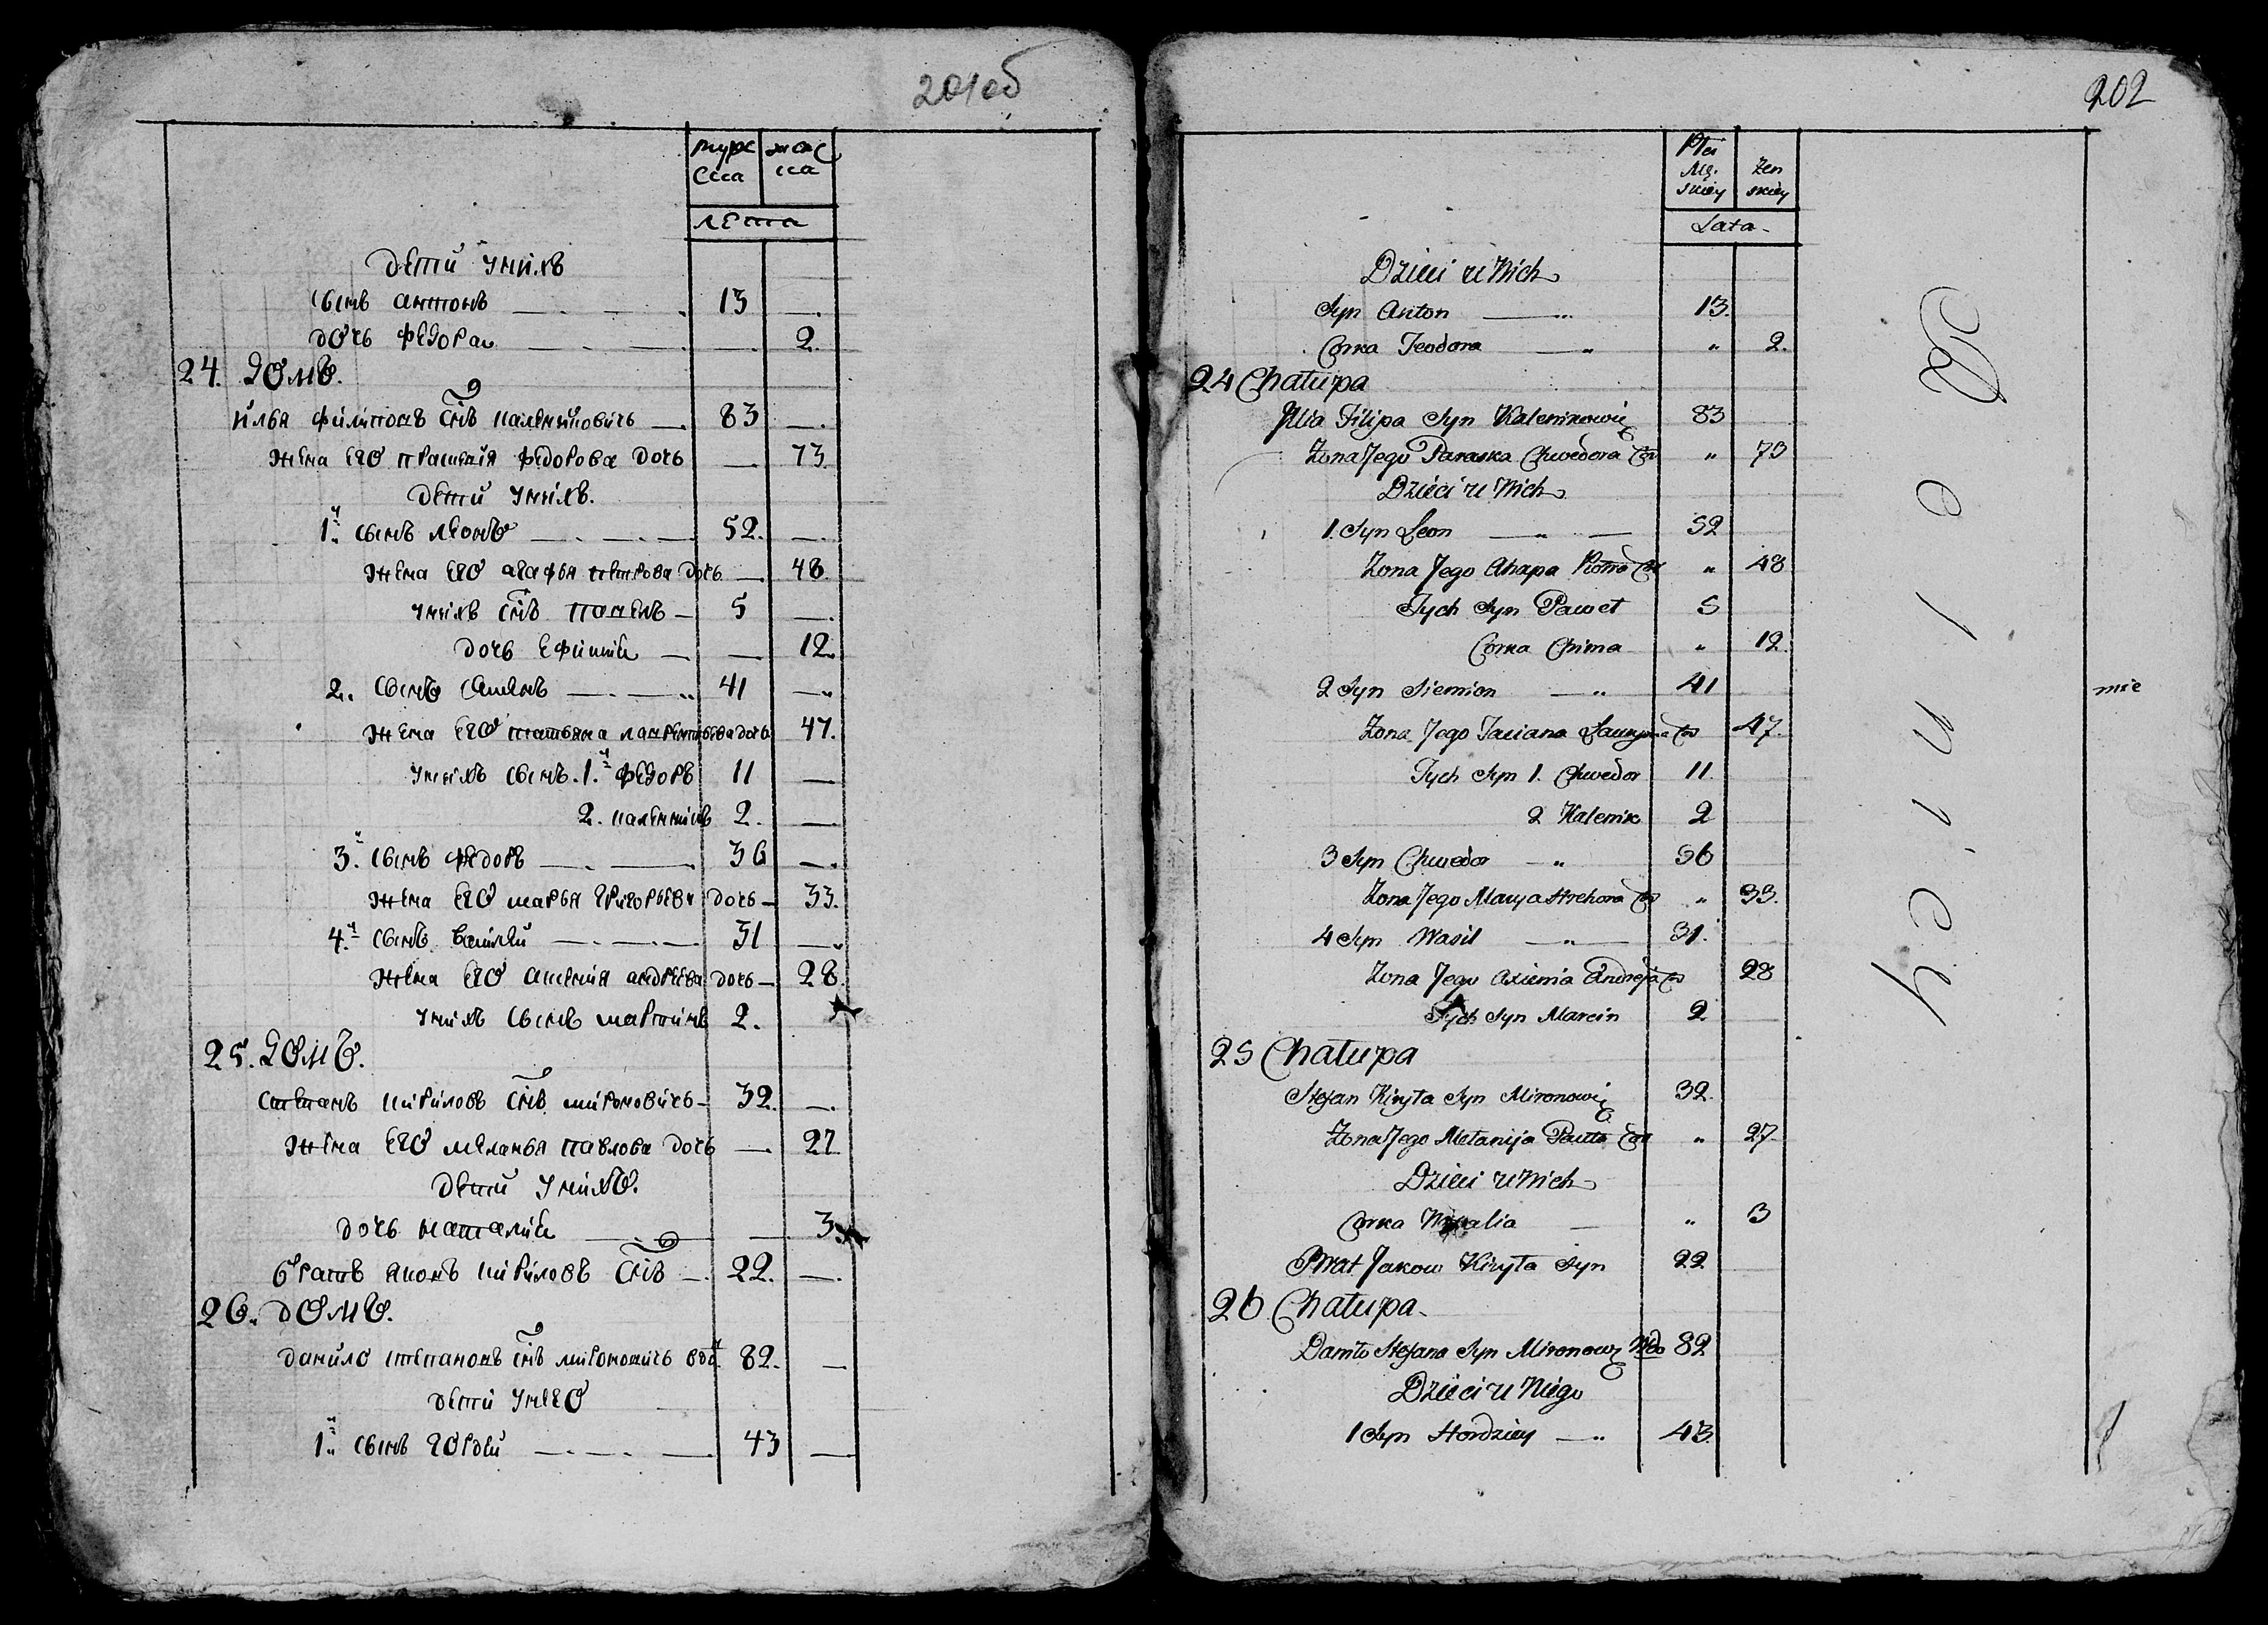 201об
муж женс
ска ка
лета
дети у них
сын антонъ 13
дочь федора 2.
24. домъ.
илья филиповъ снъ калениковичь 83
жена его прасковія федорова дочь 73
дети у них.
1й сынъ леонъ 52.
жена его агафья петрова дочь 48.
у них снъ павелъ 5
дочь ефимія 12.
2. сынъ семенъ 41
жена его татьяна лаврентьева дочь 47.
у нихъ сынъ 1й федоръ 11
2. каленникъ 2.
3й сынъ федоръ 36
жена его марья григорьева дочь 33.
4й сынъ василей 31
жена его аксенія андреева дочь 28.
у нихъ сынъ мартинъ 2.
25. домъ.
степанъ кириловъ снъ мироновичь 32.
жена его меланья павлова дочь 27
дети у нихъ.
дочь наталия 3
братъ яковъ кириловъ снъ 22.
26. домъ.
данило степановъ снъ мироновичь вдо. 82.
дети у него
1й сынъ гордей 43
202
Płci
Mę. Żen
skiey skiey
Lata
Dzieci u Nich
Syn Anton 13.
Corka Teodora " 2.
24 Chałupa
Illia Filipa Syn Kalenikowicz 83
Zona Jego Paraska Chwedora Cor " 73
Dzieci u Nich
1. Syn Leon " 52
Zona Jego Ahapa Piotra Cor " 48
Tych Syn Paweł 5
Corka Chima " 12
2 Syn Siemion " 41
Zona Jego Taciana Ławryna Cor 47.
Tych Syn 1. Chwedor 11.
2 Kalenik 2
3 Syn Chwedor " 36
Zona Jego Marya Hrehora Cor " 33.
4 Syn Wasil " 31.
Zona Jego Axienia Andreja Cor 28
Tych Syn Marcin 2
25 Chałupa
Stefan Kiryła Syn Mironowicz 32.
Zona Jego Mełanija Pawła Cor " 27.
Dzieci u Nich
Corka Natalia " 3
Brat Jakow Kiryła Syn 22
26 Chałupa
Daniło Stefana Syn Mironowicz Wdo 82
Dzieci u Niego
1 Syn Hordziey " 43.
mie